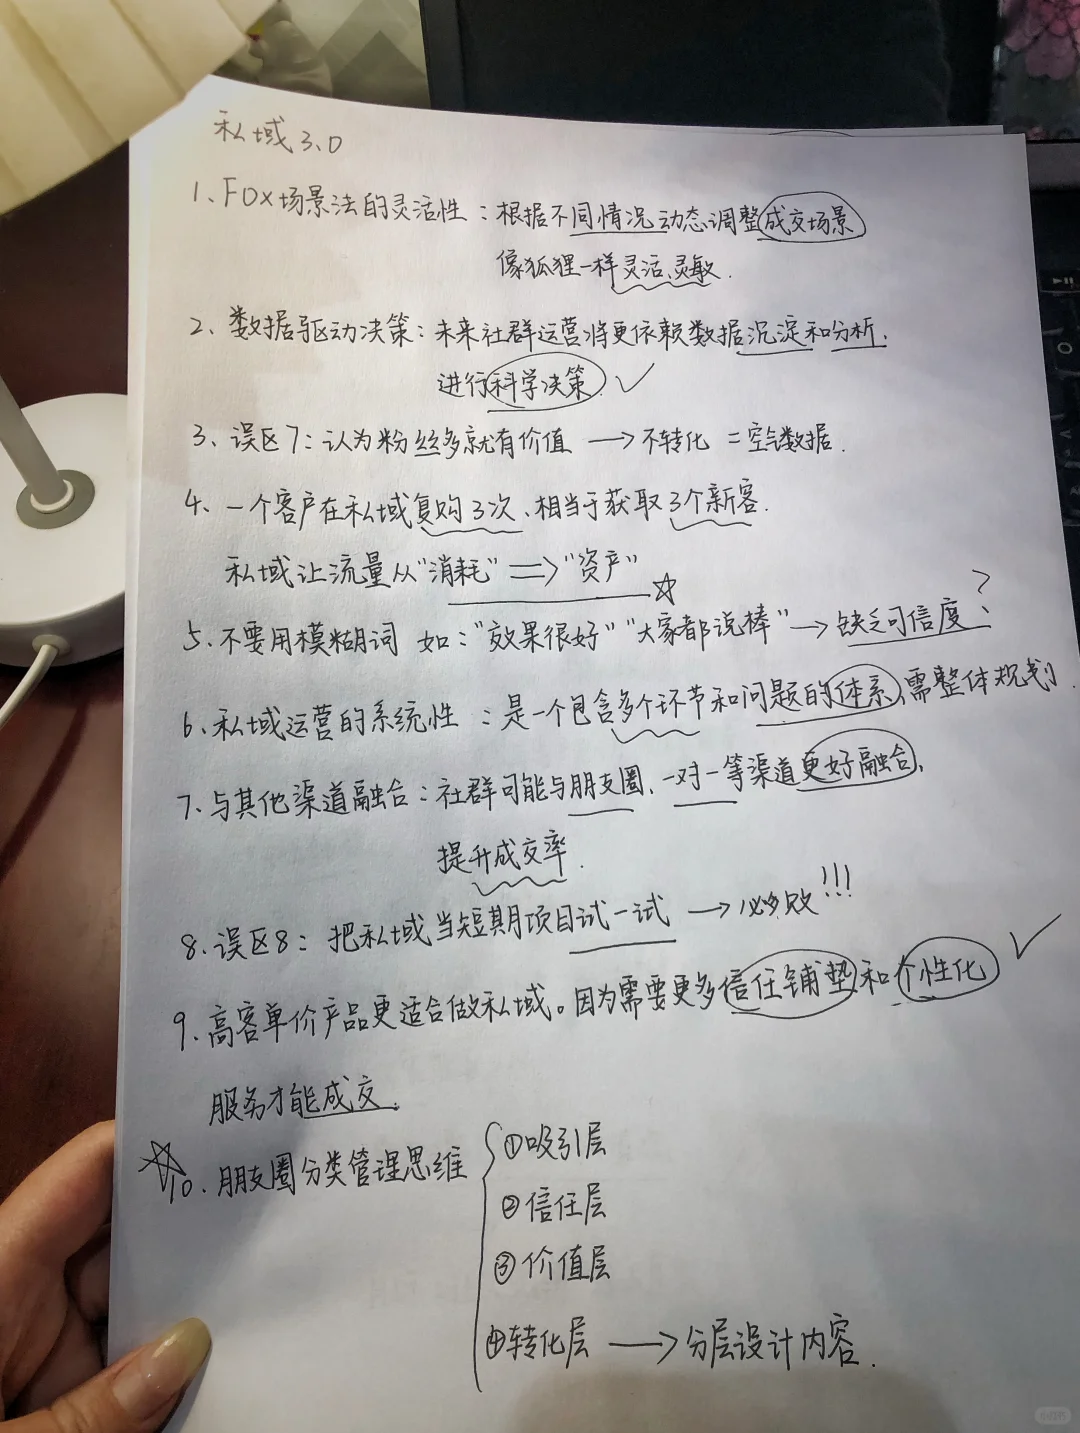 私域3.0
1、FOX场景法的灵活性：根据不同情况动态调整成交场景
像狐狸一样灵活、灵敏.
2、数据驱动决策：未来社群运营将更依赖数据沉淀和分析.
进行科学决策
3、误区7：认为粉丝多就有价值→不转化=空气数据.
4、一个客户在私域复购3次、相当于获取3个新客.
私域让流量从“消耗”⇒“资产”
5、不要用模糊词 如：“效果很好”“大家都说棒”→缺乏可信度?
6、私域运营的系统性：是一个包含多个环节和问题的体系,需整体规划.
7、与其他渠道融合：社群可能与朋友圈、一对一等渠道更好融合、
提升成交率.
8.误区8：把私域当短期项目试一试→必败!!!
9、高客单价产品更适合做私域。因为需要更多信任铺垫和个性化
服务才能成交.
10.朋友圈分类管理思维
①吸引层
②信任层
③价值层
④转化层→分层设计内容.